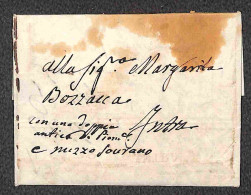 alla Sig.ª Margarita
Bozzacca
con una doppia Intra
antica di Piem.te
e mezzo sovrano